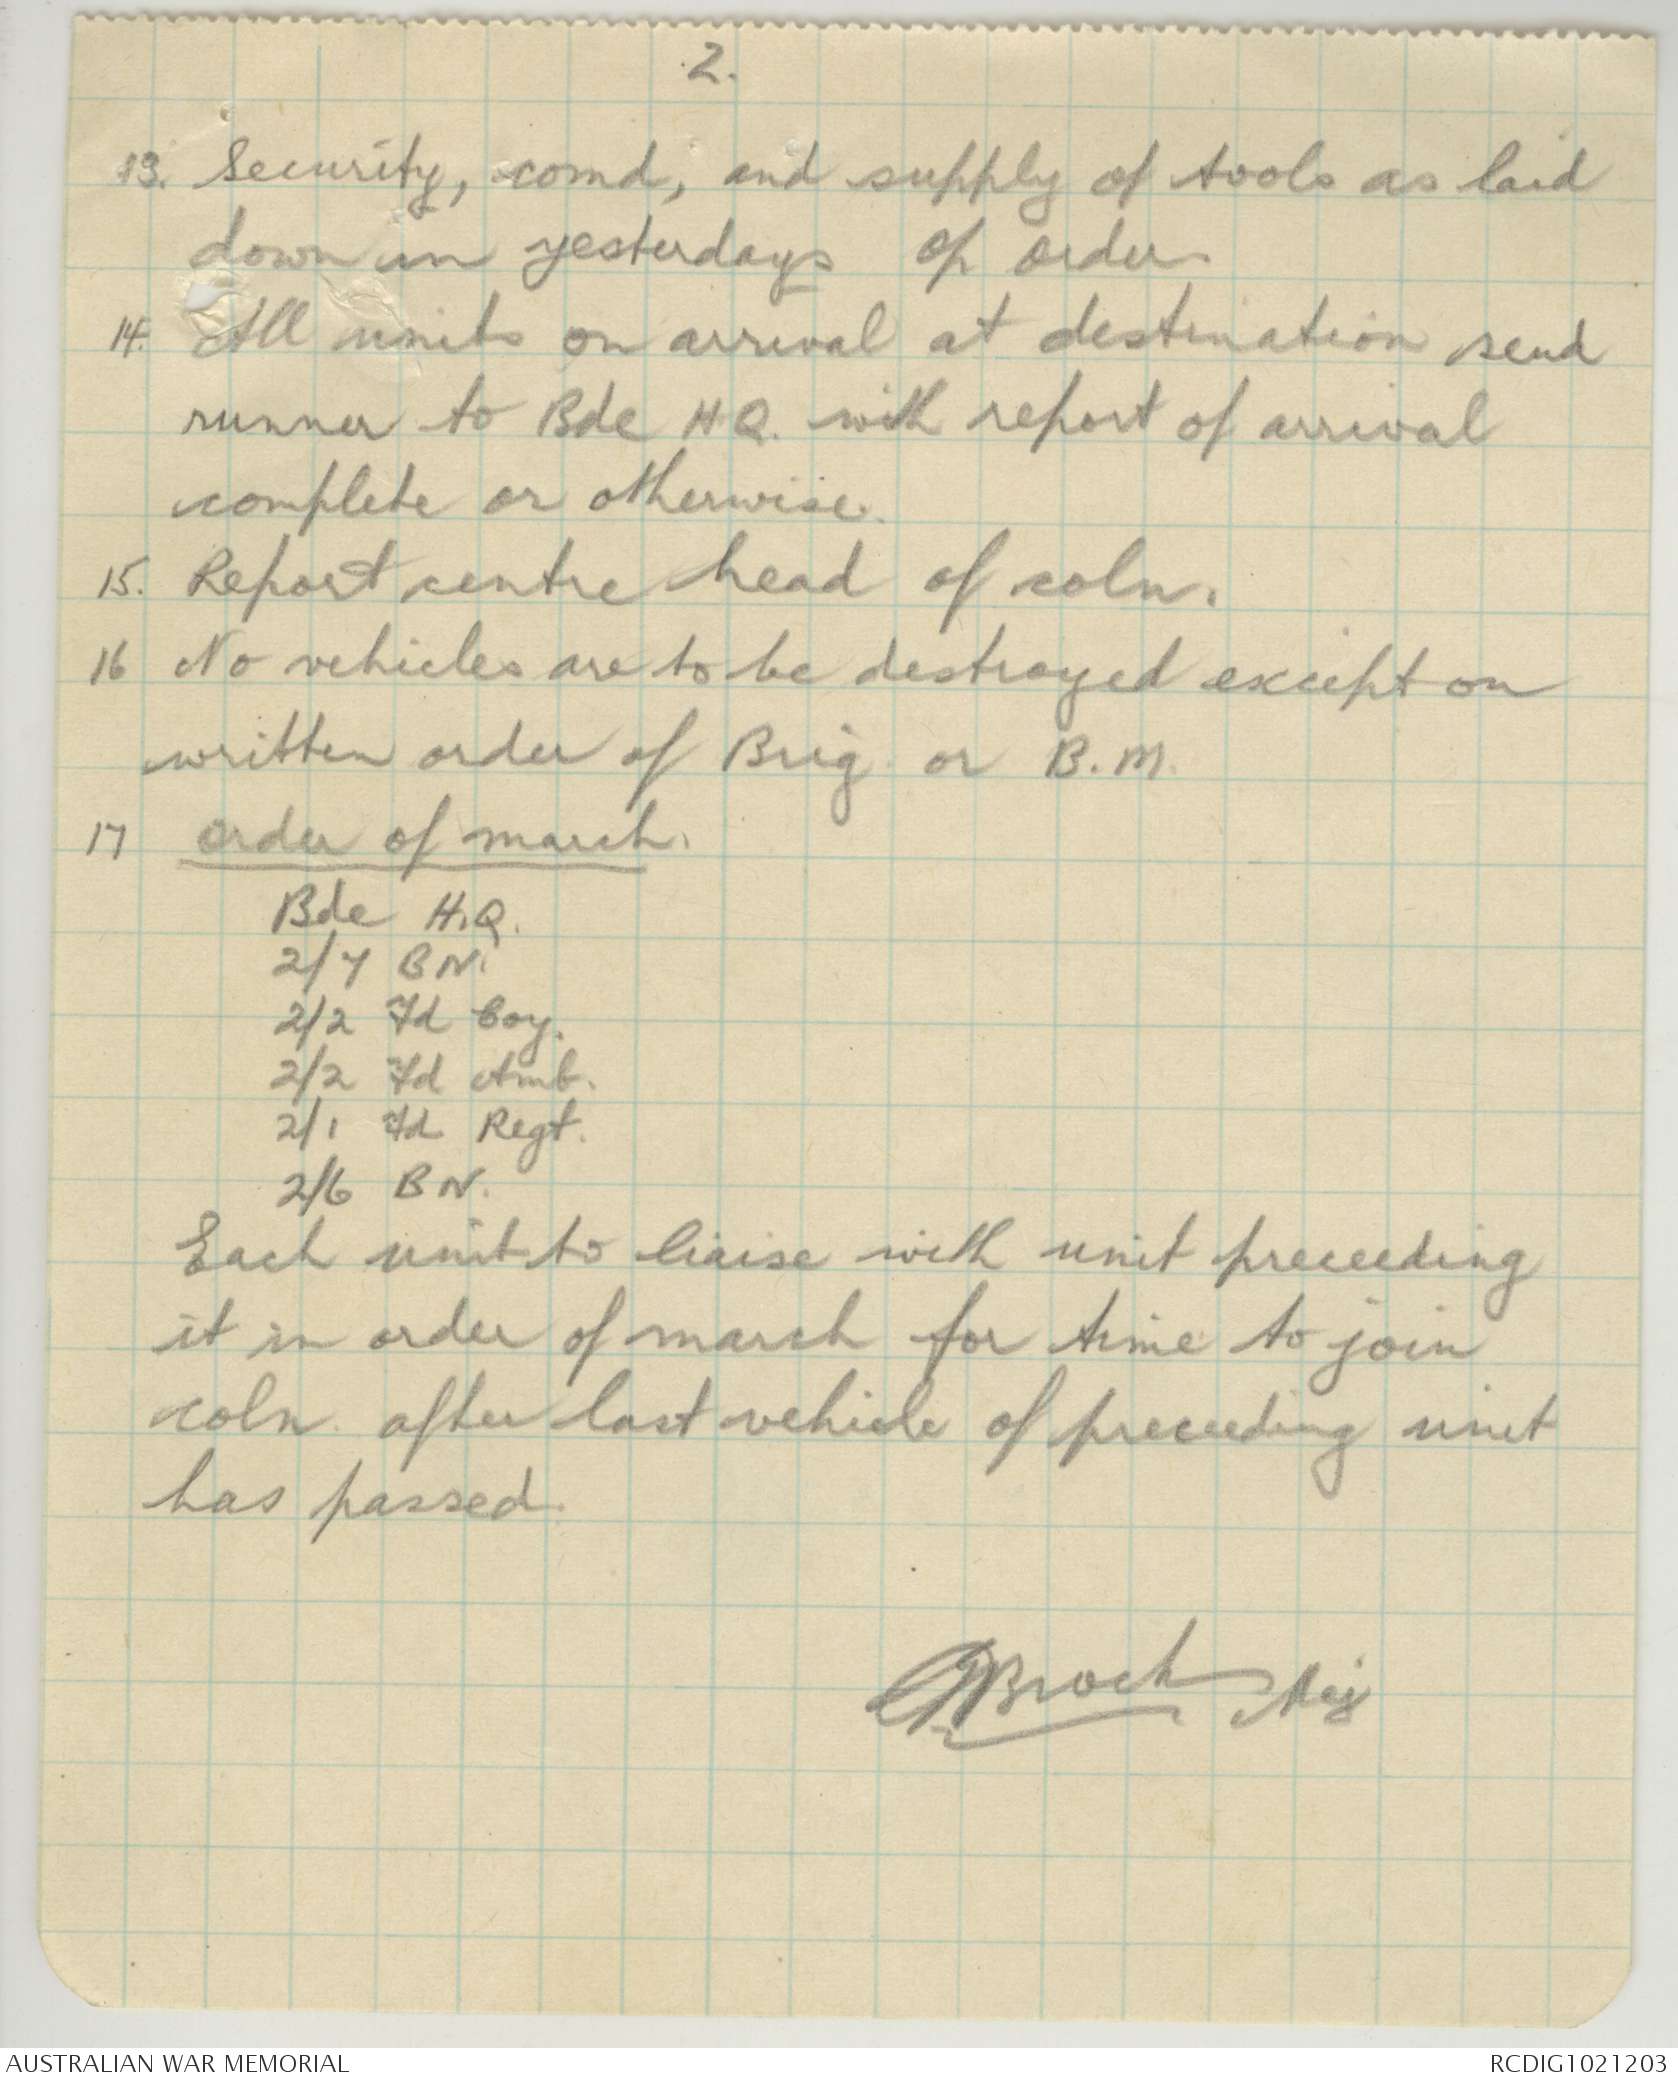 2.
13. Security, comd, and supply of tools as laid
down in yesterdays op order.
14. All units on arrival at destination send
runner to Bde H.Q. with report of arrival
complete or otherwise.
15. Report centre head of coln.
16 No vehicles are to be destroyed except on
written order of Brig or B.M.
17 Order of march.
Bde H.Q.
2/7 BN.
2/2 Fd Coy.
2/2 Fd Amb.
2/1 Fd Regt.
2/6 BN.
Each unit to liaise with unit preceeding
it in order of march for time to join
coln. after last vehicle of preceeding unit
has passed.
Brock Maj
AUSTRALIAN WAR MEMORIAL
RCDIG1021203